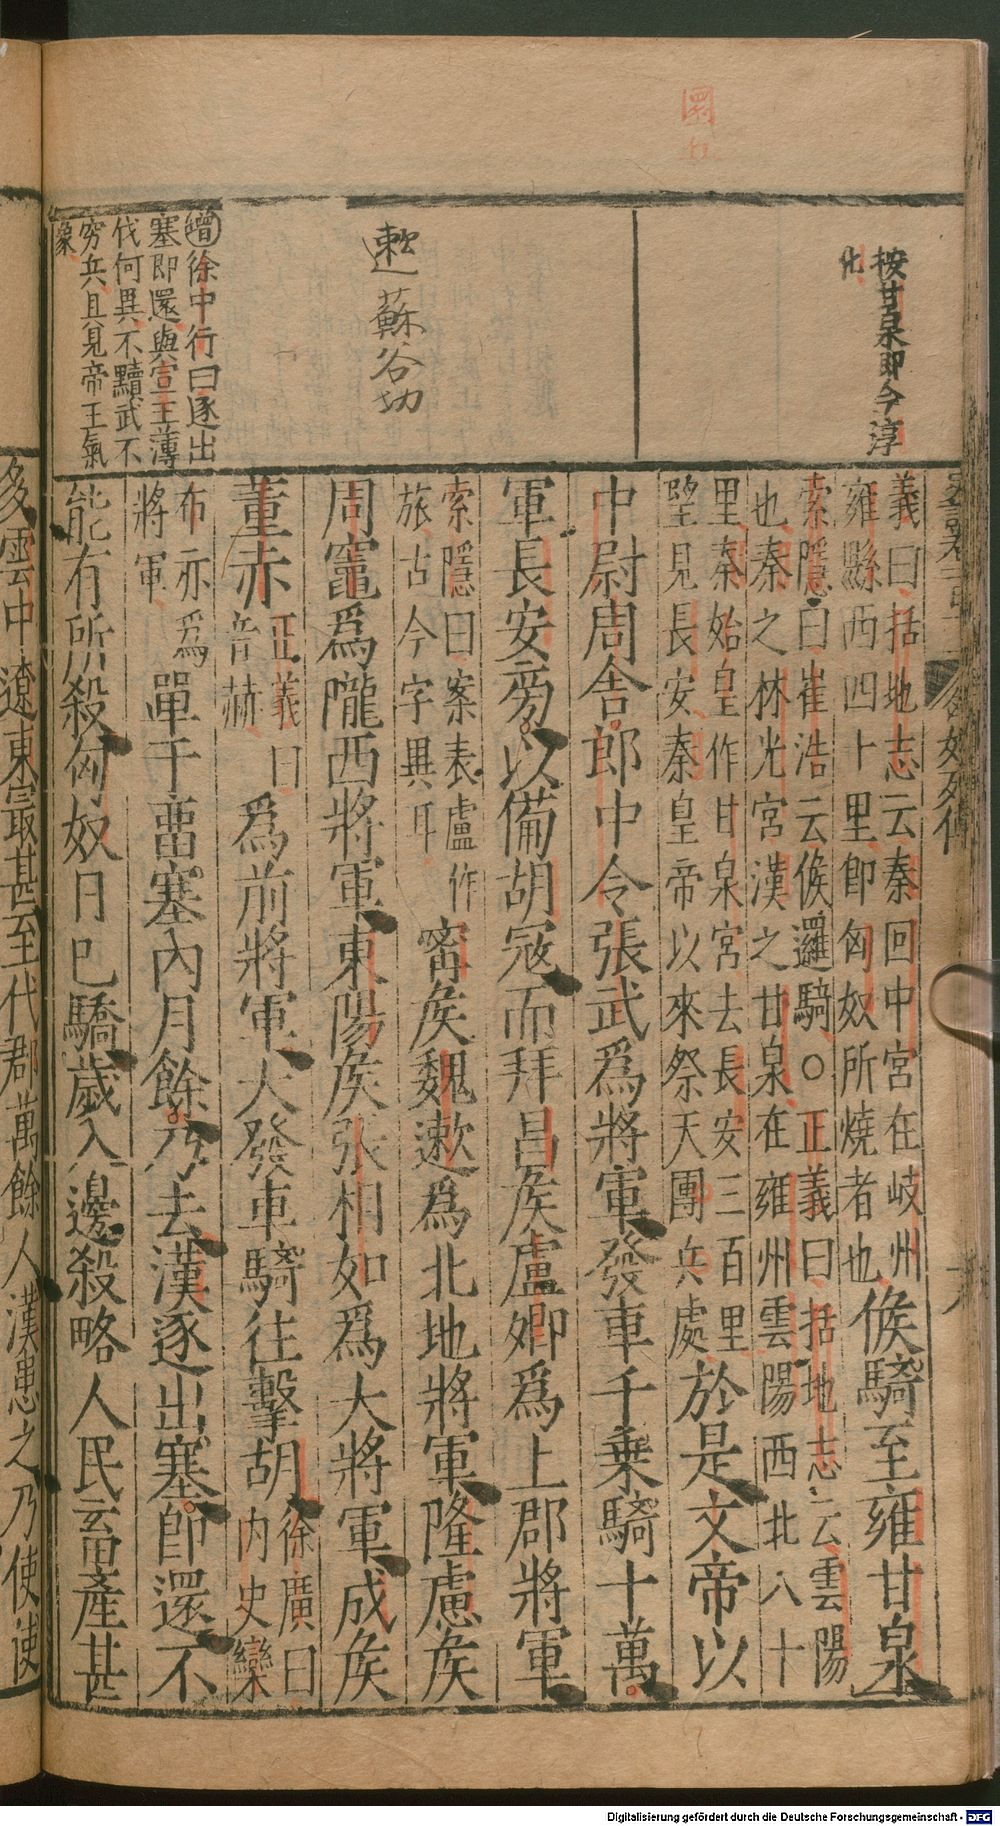 按甘泉即今淳
化
遬蘇谷切
增徐中行曰逐出
塞即還與宣王薄
伐何異不黷武不
窮兵且見帝王氣
象
匈奴列傳
義曰括地志云秦回中宮在岐州
雍縣西四十里即匈奴所燒者也
候騎至雍甘泉
索隱曰崔浩云候邏騎○正義曰括地志云雲陽
也秦之林光宮漢之甘泉在雍州雲陽西北八十
里秦始皇作甘泉宮去長安三百里
望見長安秦皇帝以來祭天圜丘處
於是文帝以
中尉周舍郎中令張武為將軍發車千乗騎十萬
軍長安旁以備胡冦而拜昌侯盧卿為上郡將軍
索隱曰案表盧作
旅古今字異耳
甯侯魏遬為北地將軍隆慮侯
周竈為隴西將軍東陽侯張相如為大將軍成侯
董赤
正義曰
音赫
為前將軍大發車騎往擊胡
徐廣曰
内史欒
布亦為
將軍
單于畱塞內月餘乃去漢逐出塞即還不
能有所殺匈奴日已驕歲入邊殺略人民畜產甚
多雲中遼東最甚至代郡萬餘人漢患之乃使使
圜
丘
Digitalisierung gefördert durch die Deutsche Forschungsgemeinschaft - DFG